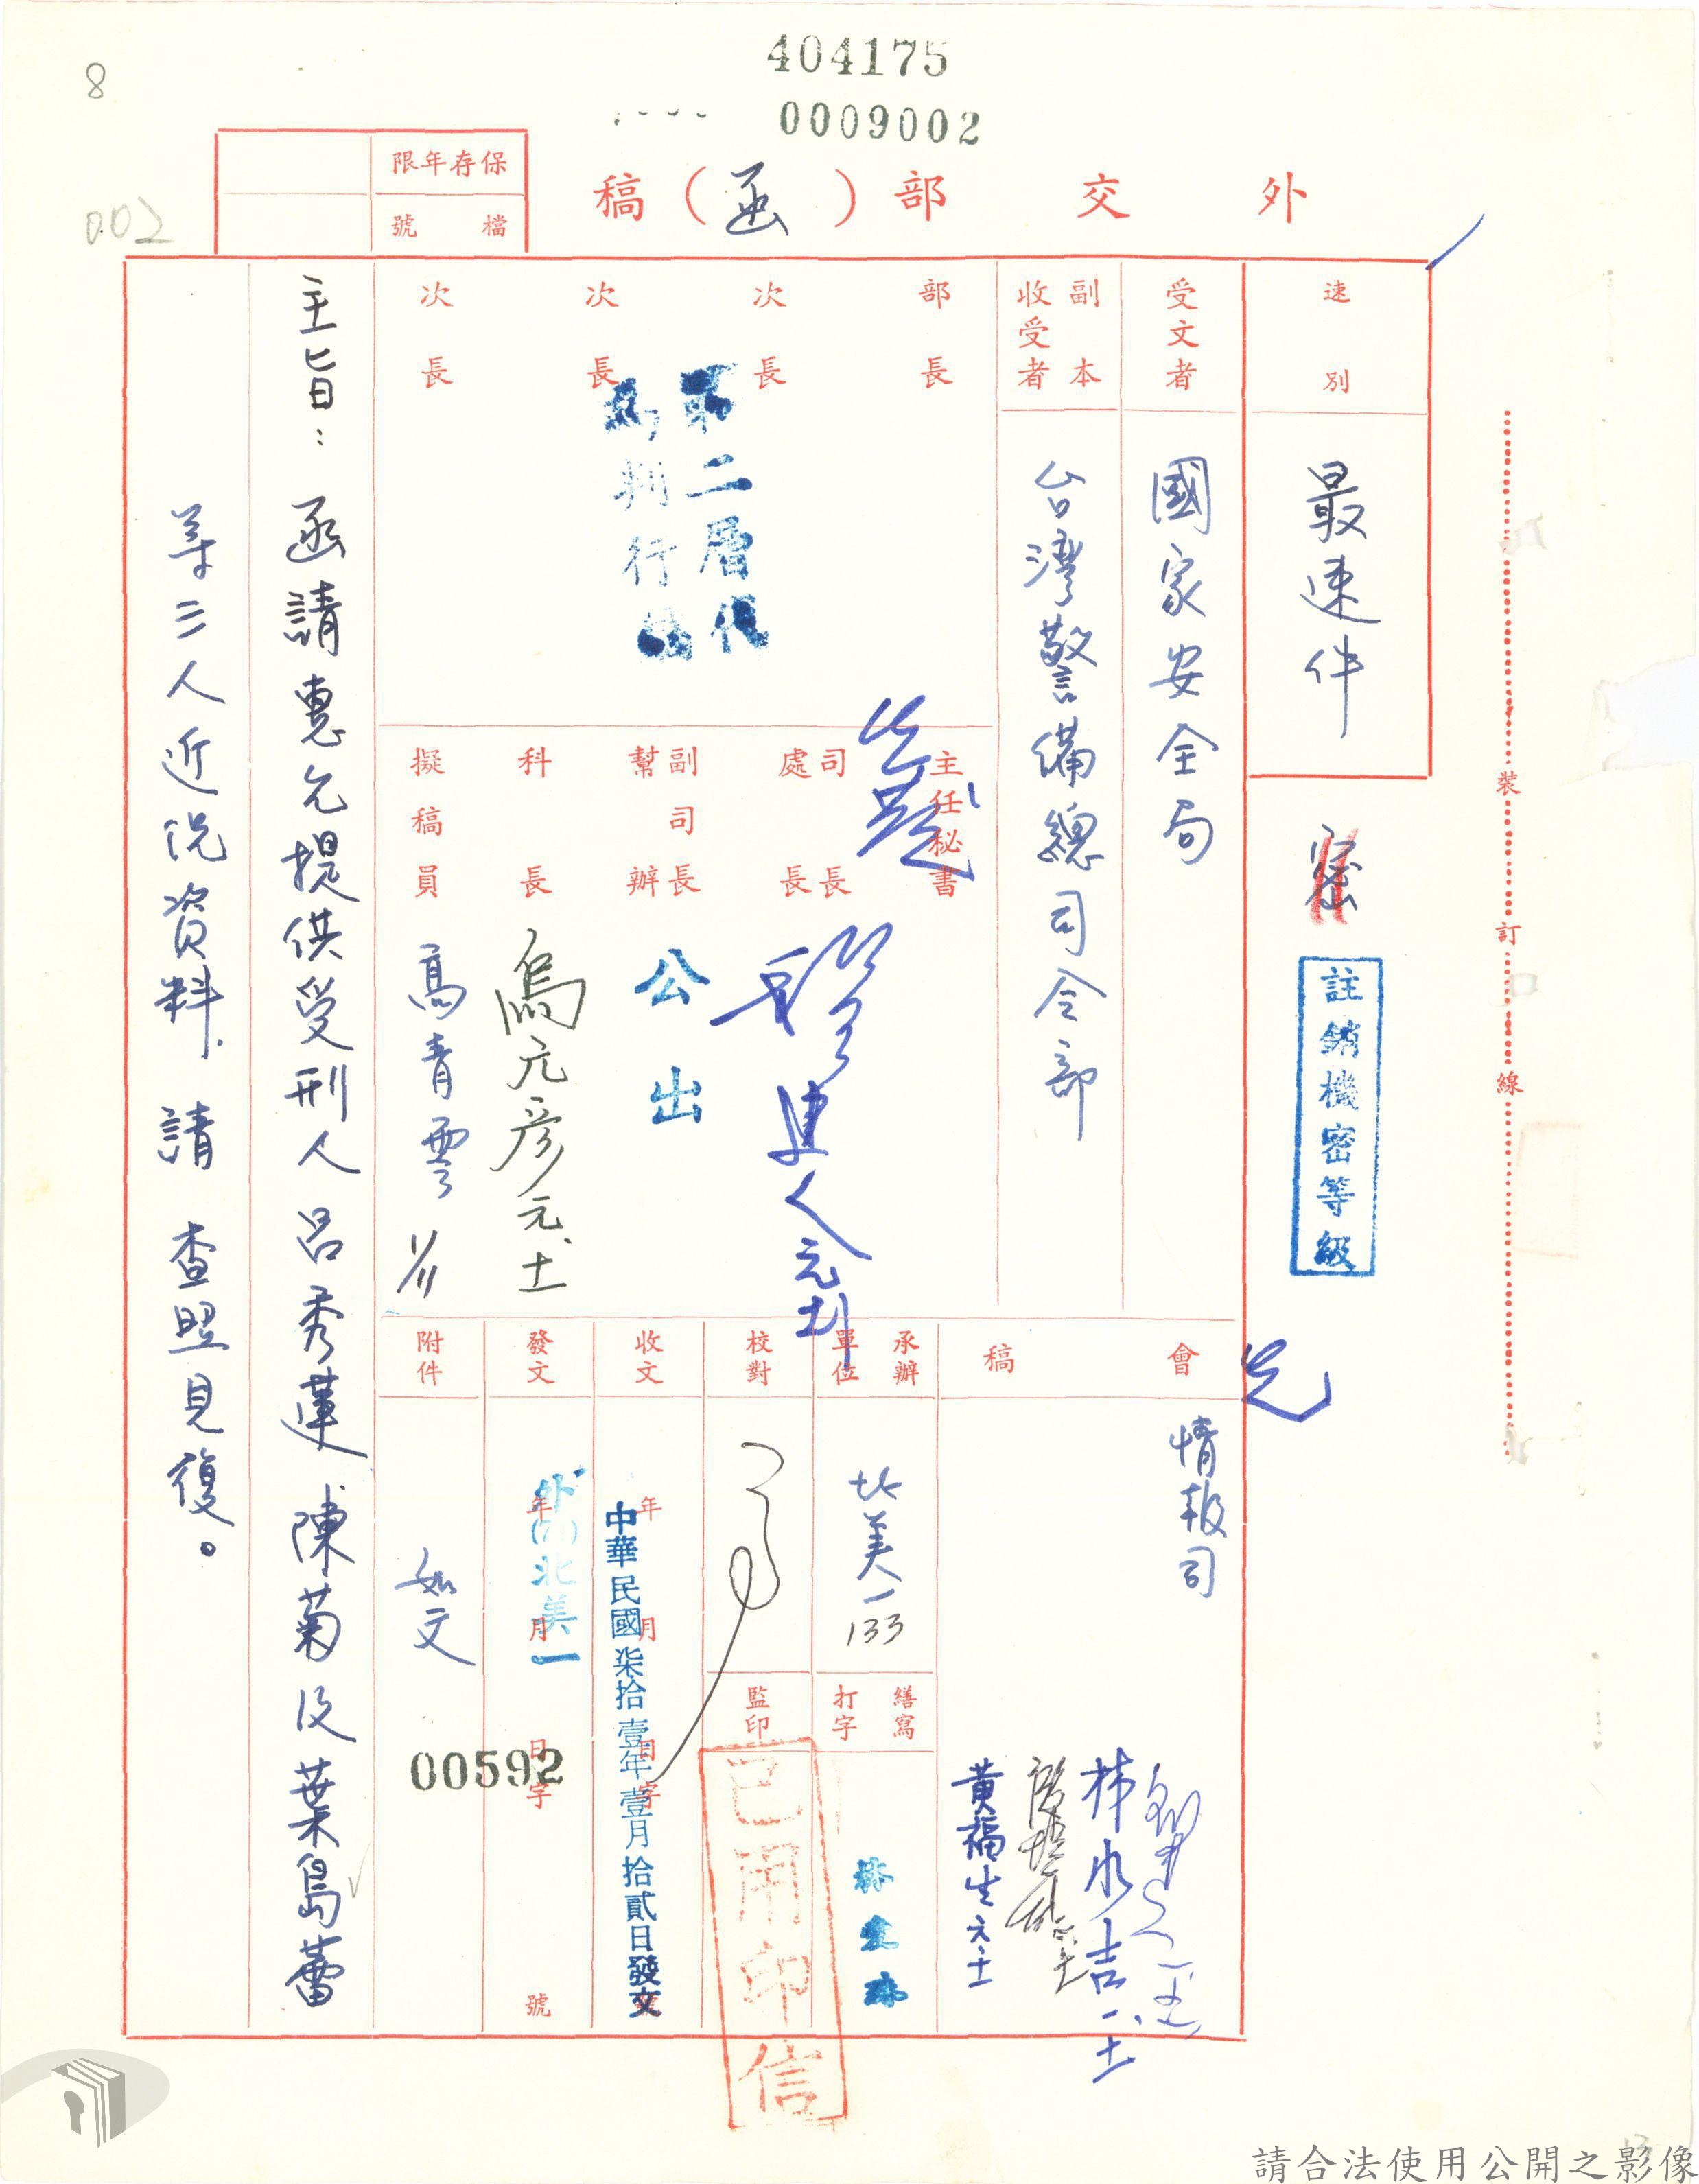 404175
0009002
8
002
外交部（函）稿
保存年限
檔號
速別
最速件
密
註銷機密等級
裝訂線
受文者
國家安全局
副本收受者
台灣警備總司令部
部長
次長
次長
次長
第二層代
判行
主任秘書
司長
處長
副司長
幫辦
公出
科長
烏元彥元.十一
擬稿員
高青雲 1/11
會稿
情報司
林水吉
黃福生
承辦單位
北美一
133
繕寫
打字
校對
監印
已用印信
收文
年月日字號
中華民國柒拾壹年壹月拾貳日發文
發文
年月日字號
外(71)北美一
00592
附件
如文
主旨：函請惠允提供受刑人呂秀蓮陳菊及葉島蕾
等三人近況資料，請 查照見復。
請合法使用公開之影像